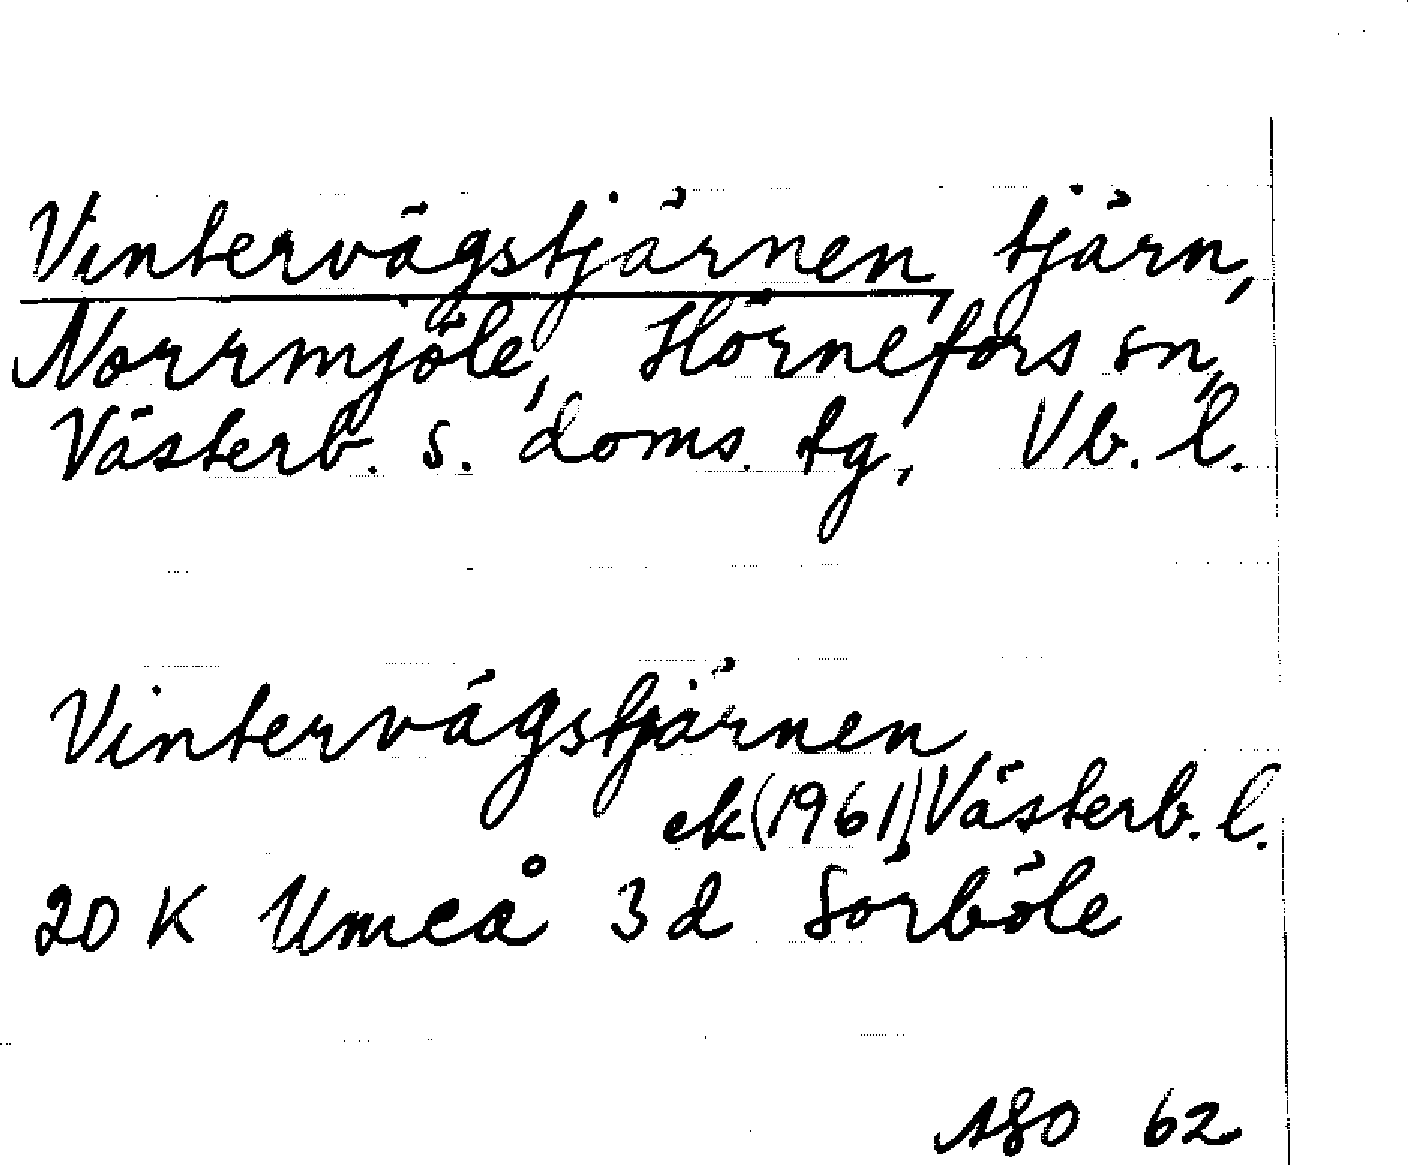 Vintervägstjärnen, tjärn,
Norrmjöle, Hörnefors sn,
Västerb. s. doms. tg, Vb. l.
Vintervägstjärnen
ek (1961) Västerb. l.
20 K Umeå 3 d Sörböle
62